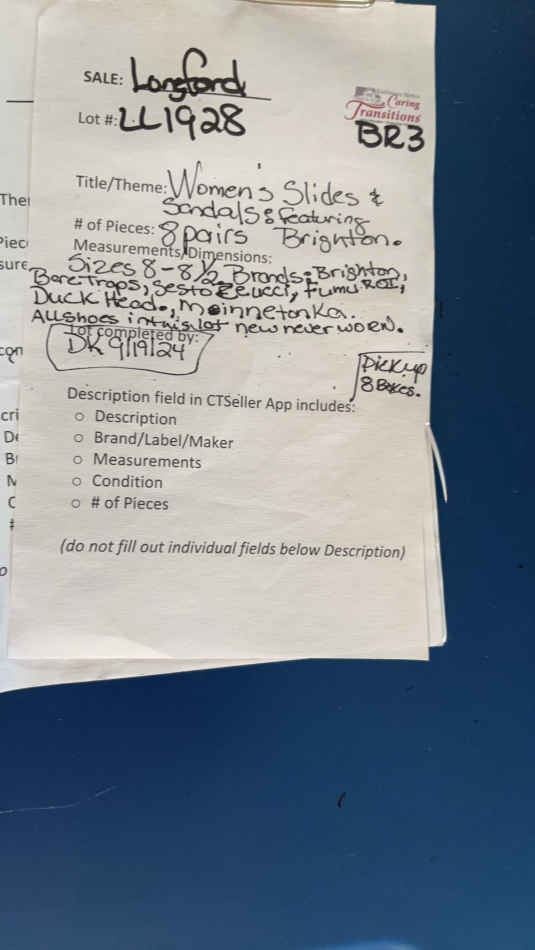 SALE: Longford
Caring
Transitions
Lot #: LL1928
BR3
Title/Theme: Women's Slides &
Sandals: featuring
# of Pieces: 8 pairs Brighton.
Measurements/Dimensions:
Sizes 8-8½ Brands: Brighton,
BareTraps, Sesto Meucci, Fumu ROI,
Duck Head, Minnetonka.
All shoes in this lot new never worn.
Lot completed by:
DK 9/19/24
Pick up
8 Boxes.
Description field in CTSeller App includes:
○ Description
○ Brand/Label/Maker
○ Measurements
○ Condition
○ # of Pieces
(do not fill out individual fields below Description)